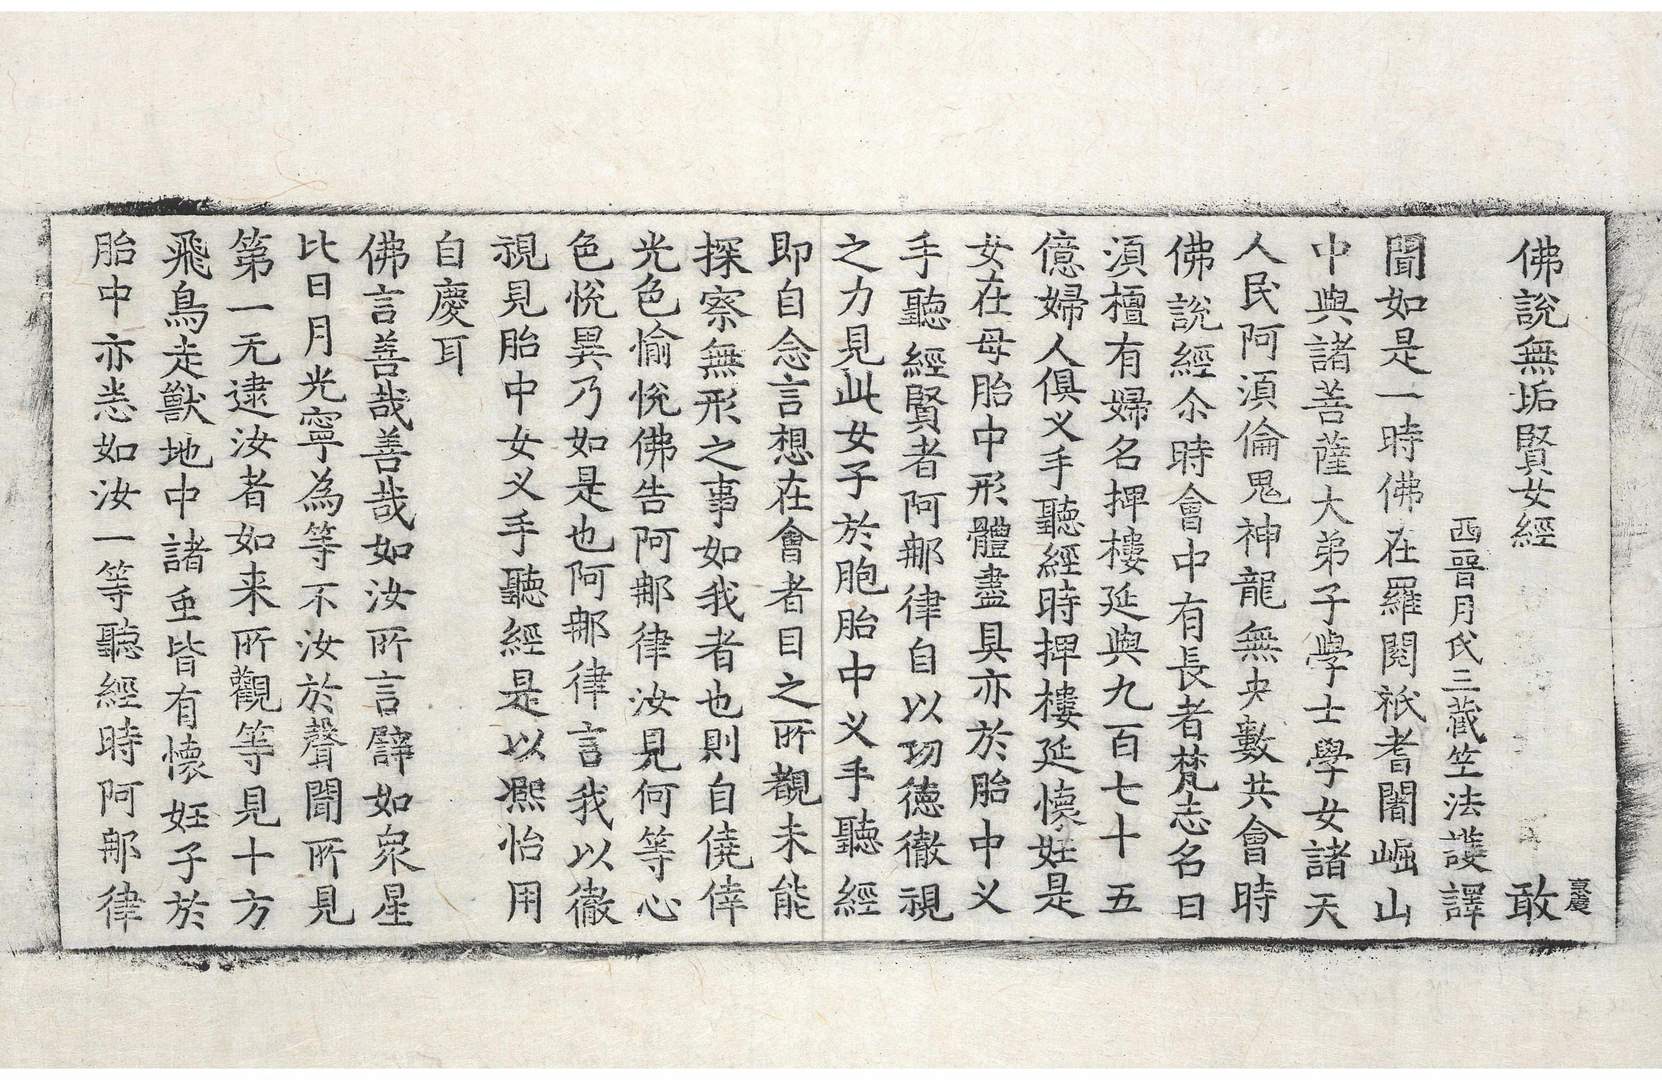 佛說無垢賢女經　敢
西晉月氏三藏竺法護譯
聞如是一時佛在羅閱祇耆闍崛山
中與諸菩薩大弟子學士學女諸天
人民阿湏倫鬼神龍無央數共會時
佛說經尒時會中有長者梵志名曰
湏檀有婦名押樓延與九百七十五
億婦人俱义手聽經時押樓延懷妊是
女在母胎中形體盡具亦於胎中义
手聽經賢者阿那律自以功德徹視
之力見此女子於胞胎中义手聽經
即自念言想在會者目之所覩未能
探察無形之事如我者也則自僥倖
光色愉悅佛告阿那律汝見何等心
色悅異乃如是也阿那律言我以徹
視見胎中女义手聽經是以熈怡用
自慶耳
佛言善哉善哉如汝所言譬如衆星
比日月光寧為等不汝於聲聞所見
第一无逮汝者如来所觀等見十方
飛鳥走獸地中諸虫皆有懷妊子於
胎中亦悉如汝一等聽經時阿那律